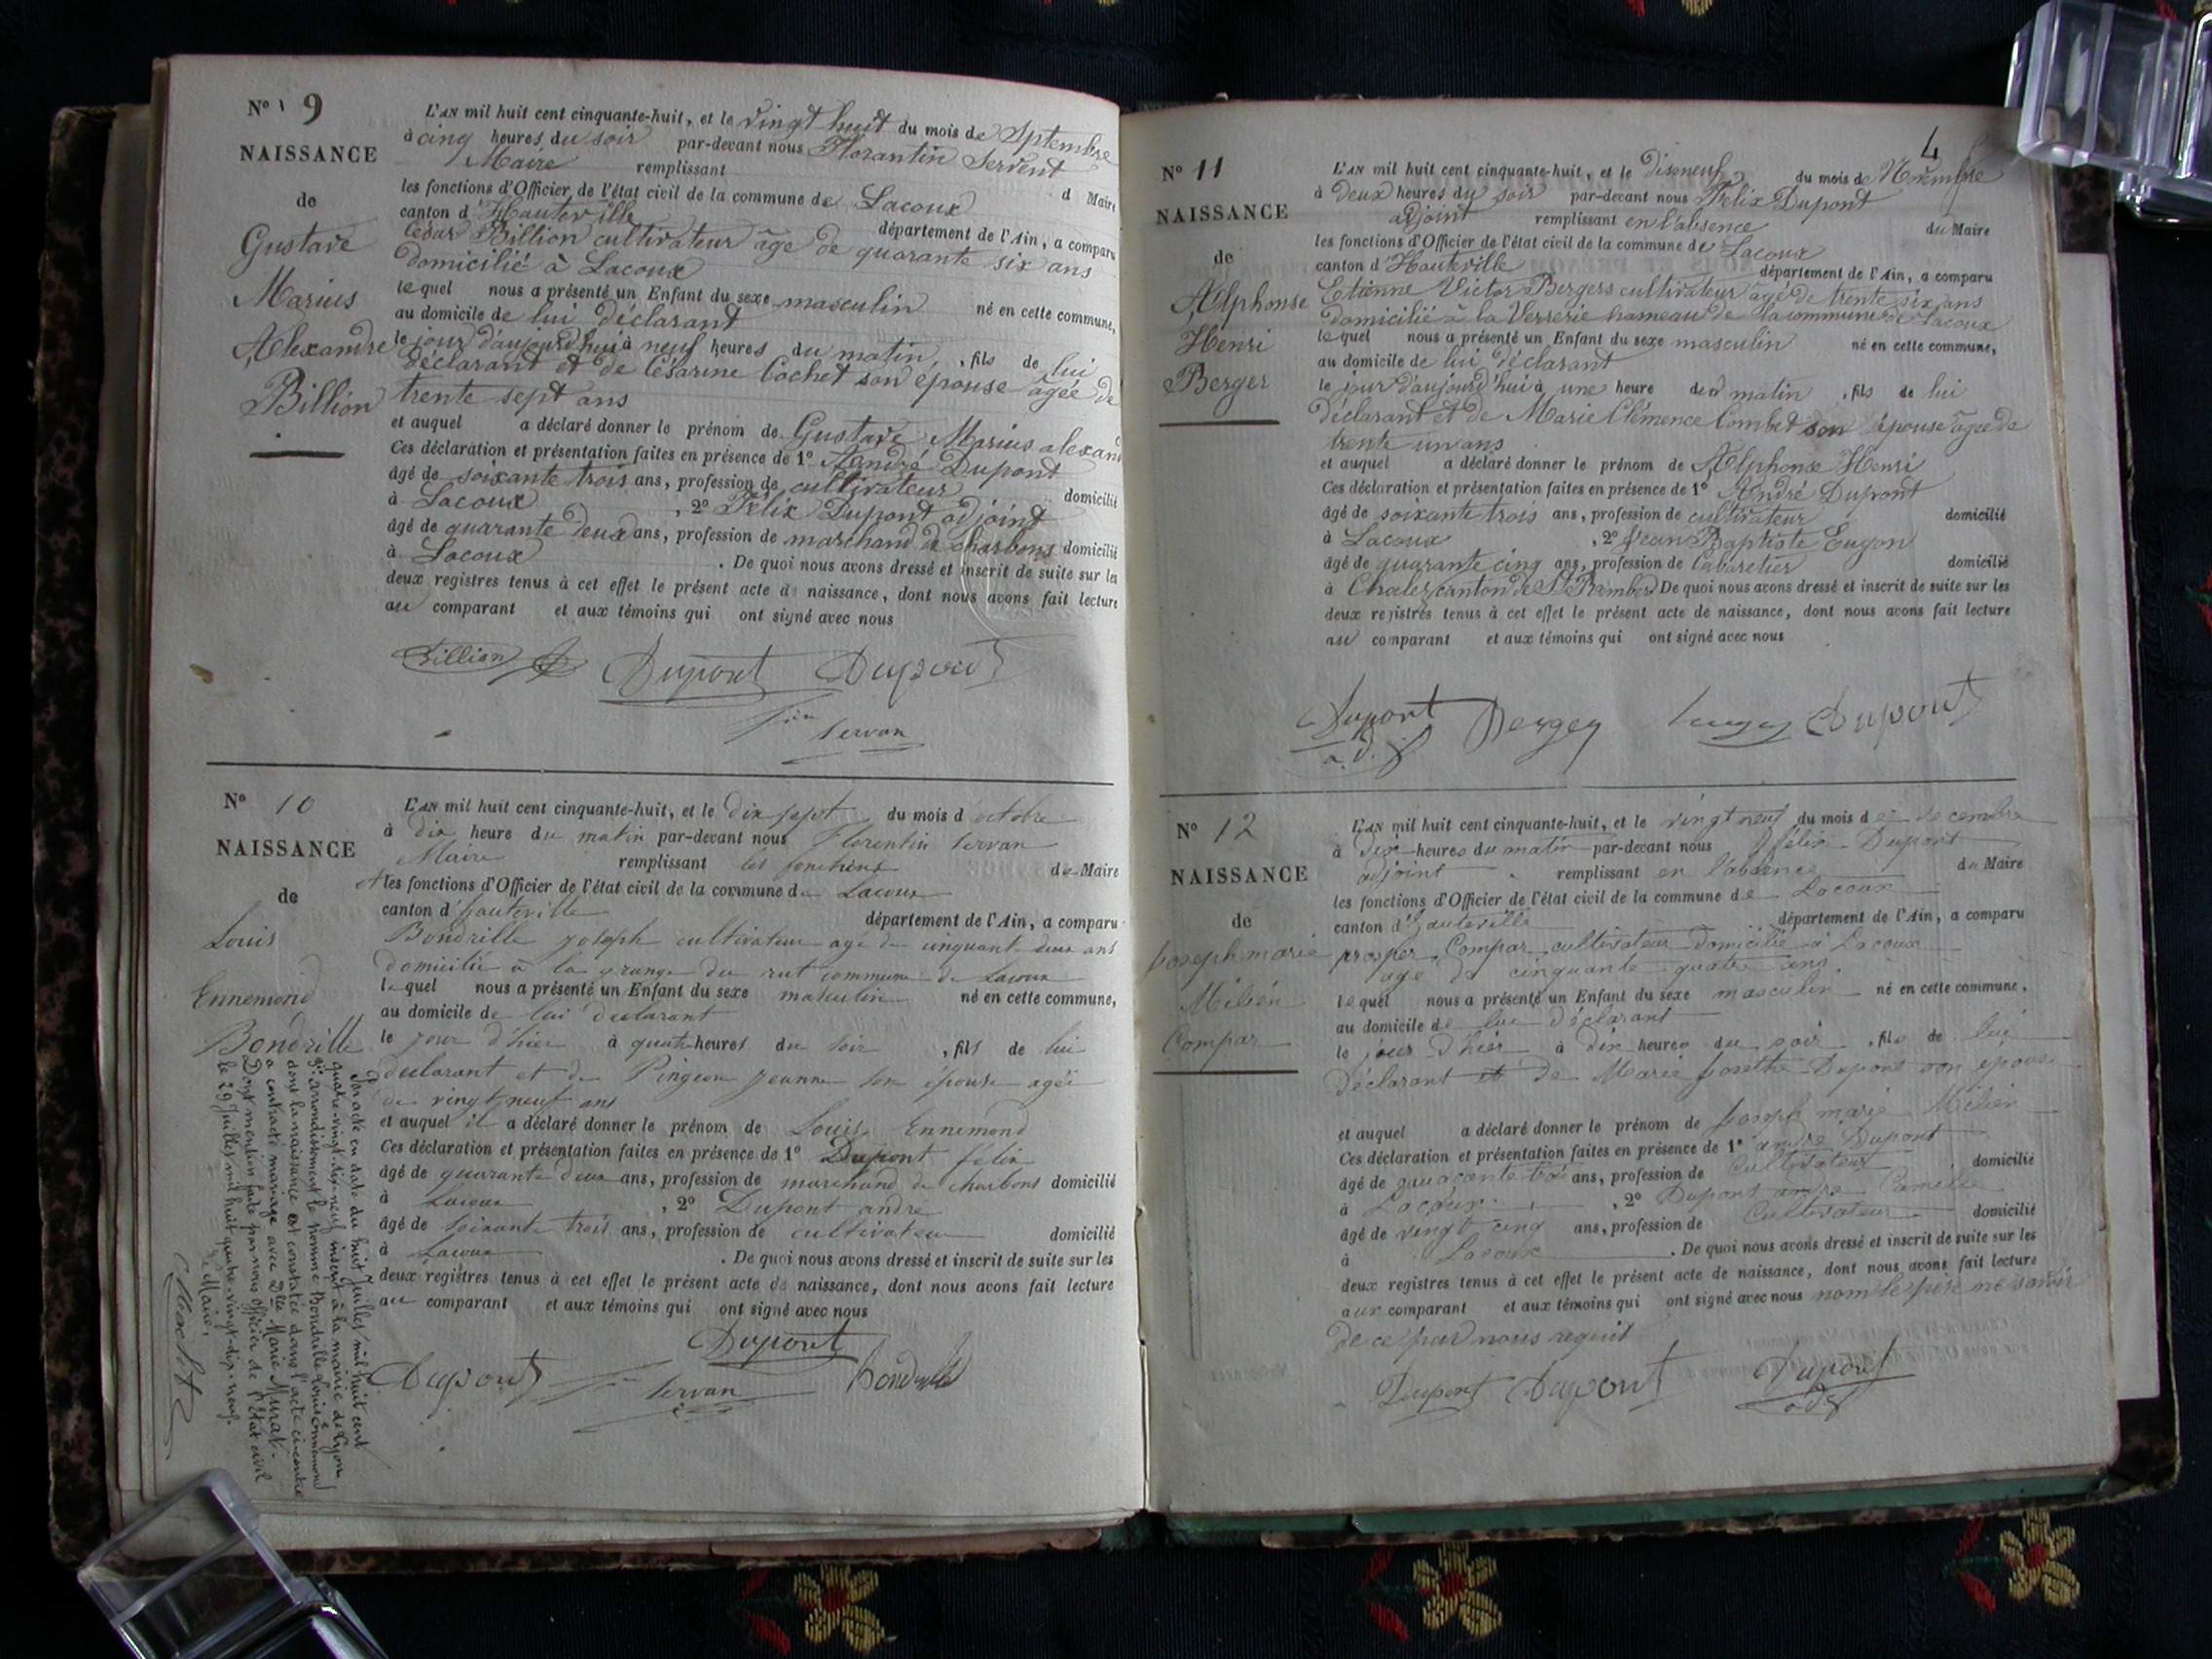 N° 9
NAISSANCE
de
Gustave
Marius
Alexandre
Billion
L'AN mil huit cent cinquante-huit, et le vingt huit du mois de Septembre
à cinq heures du soir par-devant nous Florantin Servent
Maire remplissant d Maire
les fonctions d'Officier de l'état civil de la commune de Lacoux
canton d'Hauteville département de l'Ain, a comparu
César Billion cultivateur âgé de quarante six ans
domicilié à Lacoux
lequel nous a présenté un Enfant du sexe masculin né en cette commune,
au domicile de lui déclarant
le jour d'aujourd'hui à neuf heures du matin, fils de lui
déclarant et de Césarine Cochet son épouse âgée de
trente sept ans
et auquel a déclaré donner le prénom de Gustave Marius alexand
Ces déclaration et présentation faites en présence de 1° André Dupont
âgé de soixante trois ans, profession de cultivateur domicilié
à Lacoux, 2° Félix Dupont adjoint
âgé de quarante deux ans, profession de marchand de charbons domicilié
à Lacoux. De quoi nous avons dressé et inscrit de suite sur les
deux registres tenus à cet effet le présent acte de naissance, dont nous avons fait lecture
au comparant et aux témoins qui ont signé avec nous
Billion Dupont Dupont
Servan
N° 10
NAISSANCE
de
Louis
Ennemond
Bondrille
L'AN mil huit cent cinquante-huit, et le dix sept du mois d'octobre
à dix heure du matin par-devant nous Florentin Servan
Maire remplissant les fonctions de Maire
les fonctions d'Officier de l'état civil de la commune de Lacoux
canton d'hauteville département de l'Ain, a comparu
Bondrille joseph cultivateur agé de cinquante deux ans
domicilié à la grange du rut commune de Lacoux
lequel nous a présenté un Enfant du sexe masculin né en cette commune,
au domicile de lui déclarant
le jour d'hier à quatre heures du soir, fils de lui
declarant et de Pingeon jeanne son épouse agée
de vingt neuf ans
et auquel il a déclaré donner le prénom de Louis Ennemond
Ces déclaration et présentation faites en présence de 1° Dupont félix
âgé de quarante deux ans, profession de marchand de charbons domicilié
à Lacoux, 2° Dupont andré
âgé de soixante trois ans, profession de cultivateur domicilié
à Lacoux. De quoi nous avons dressé et inscrit de suite sur les
deux registres tenus à cet effet le présent acte de naissance, dont nous avons fait lecture
au comparant et aux témoins qui ont signé avec nous
Dupont
Dupont Servan Bondrille
Par acte en date du huit Juillet mil huit cent
quatre-vingt-dix-neuf inscrit à la mairie de Lyon
arrondissement le nommé Bondrille Louis Ennemond
dont la naissance est constatée dans l'acte ci-contre
a contracté mariage avec Dlle Marie Murat.
Dont mention faite par nous officier de l'Etat civil
le 29 Juillet mil huit quatre-vingt-dix-neuf.
Le Maire,
4
N° 11
NAISSANCE
de
Alphonse
Henri
Berger
L'AN mil huit cent cinquante-huit, et le disneuf du mois de Novembre
à deux heures du soir par-devant nous Félix Dupont
adjoint remplissant en l'absence du Maire
les fonctions d'Officier de l'état civil de la commune de Lacoux
canton d'Hauteville département de l'Ain, a comparu
Etienne Victor Bergers cultivateur âgé de trente six ans
domicilié à la Verrerie hameau de la commune de Lacoux
lequel nous a présenté un Enfant du sexe masculin né en cette commune,
au domicile de lui déclarant
le jour d'aujourd'hui à une heure du matin, fils de lui
déclarant et de Marie Clémence Combet son épouse âgée de
trente un ans
et auquel a déclaré donner le prénom de Alphonse Henri
Ces déclaration et présentation faites en présence de 1° André Dupont
âgé de soixante trois ans, profession de cultivateur domicilié
à Lacoux, 2° Jean Baptiste Eugon
âgé de quarante cinq ans, profession de Cabaretier domicilié
à Chaley canton de St Rambert De quoi nous avons dressé et inscrit de suite sur les
deux registres tenus à cet effet le présent acte de naissance, dont nous avons fait lecture
au comparant et aux témoins qui ont signé avec nous
Dupont Berger Dupont
adj
N° 12
NAISSANCE
de
joseph marie
Milien
Compar
L'AN mil huit cent cinquante-huit, et le vingt neuf du mois de decembre
à dix heures du matin par-devant nous félix Dupont
adjoint remplissant en l'absence du Maire
les fonctions d'Officier de l'état civil de la commune de Lacoux
canton d'hauteville département de l'Ain, a comparu
prosper Compar cultivateur domicilié à Lacoux
age de cinquante quatre ans.
lequel nous a présenté un Enfant du sexe masculin né en cette commune,
au domicile de lui déclarant
le jour d'hier à dix heures du soir, fils de lui
déclarant et de Marie josethe Dupont son épouse
et auquel a déclaré donner le prénom de joseph marie Milien
Ces déclaration et présentation faites en présence de 1° andré Dupont
âgé de soixante trois ans, profession de Cultivateur domicilié
à Lacoux, 2° Dupont Camille
âgé de vingt cinq ans, profession de Cultivateur domicilié
à Lacoux. De quoi nous avons dressé et inscrit de suite sur les
deux registres tenus à cet effet le présent acte de naissance, dont nous avons fait lecture
aux comparant et aux témoins qui ont signé avec nous non le père ne savoir
de ce par nous requit
Dupont Dupont Dupont
adj